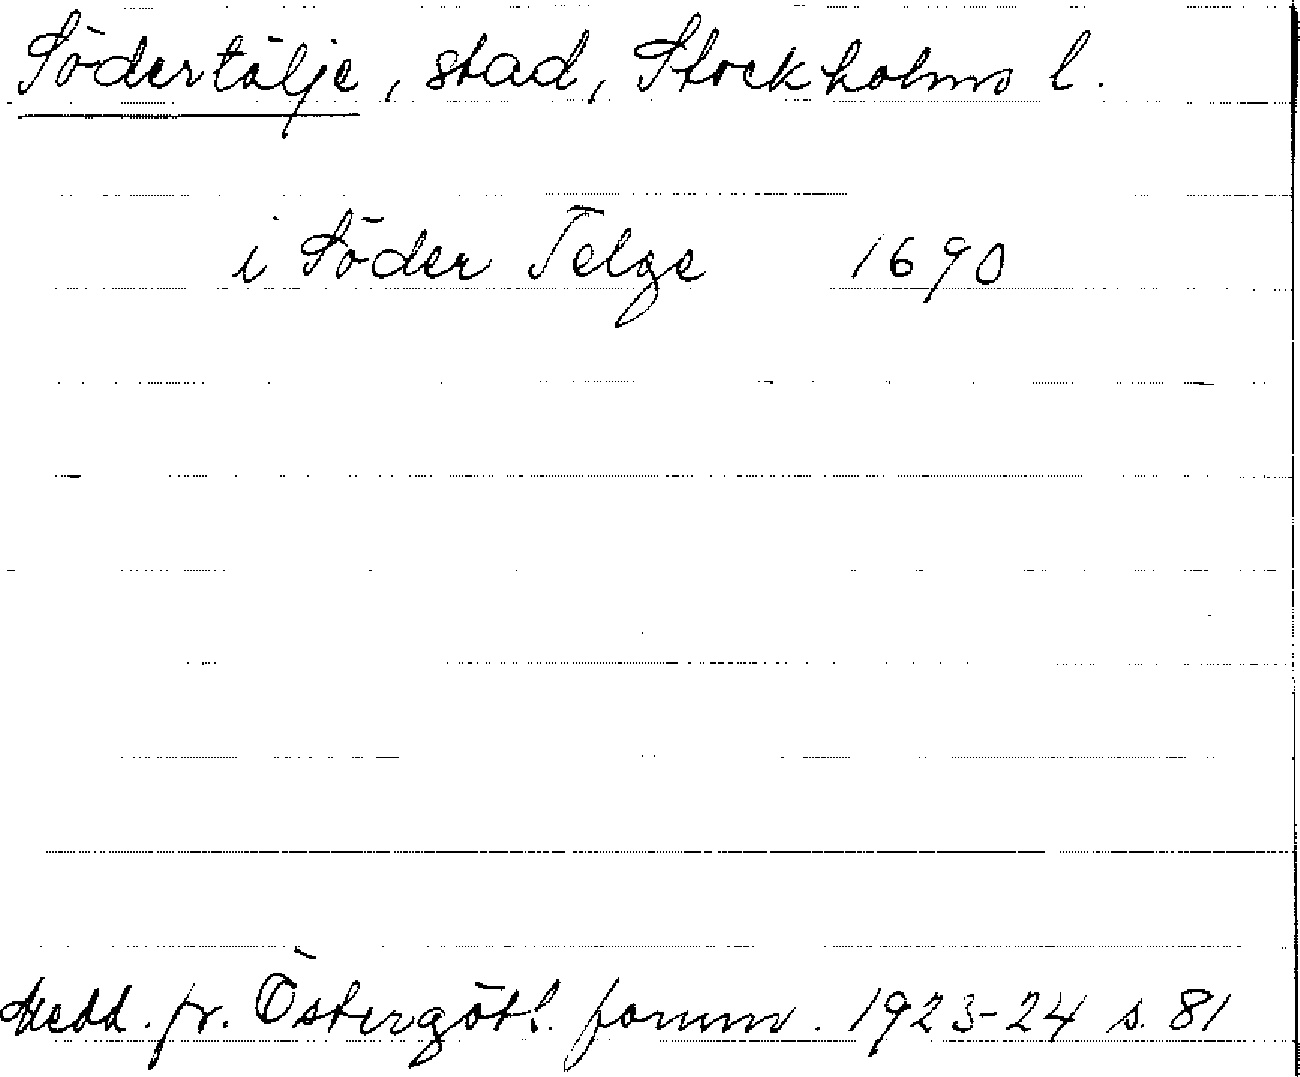 Södertälje, stad, Stockholms l.
i Söder Telge 1690
Medd. fr. Östergötl. fornm. 1923-24 s. 81